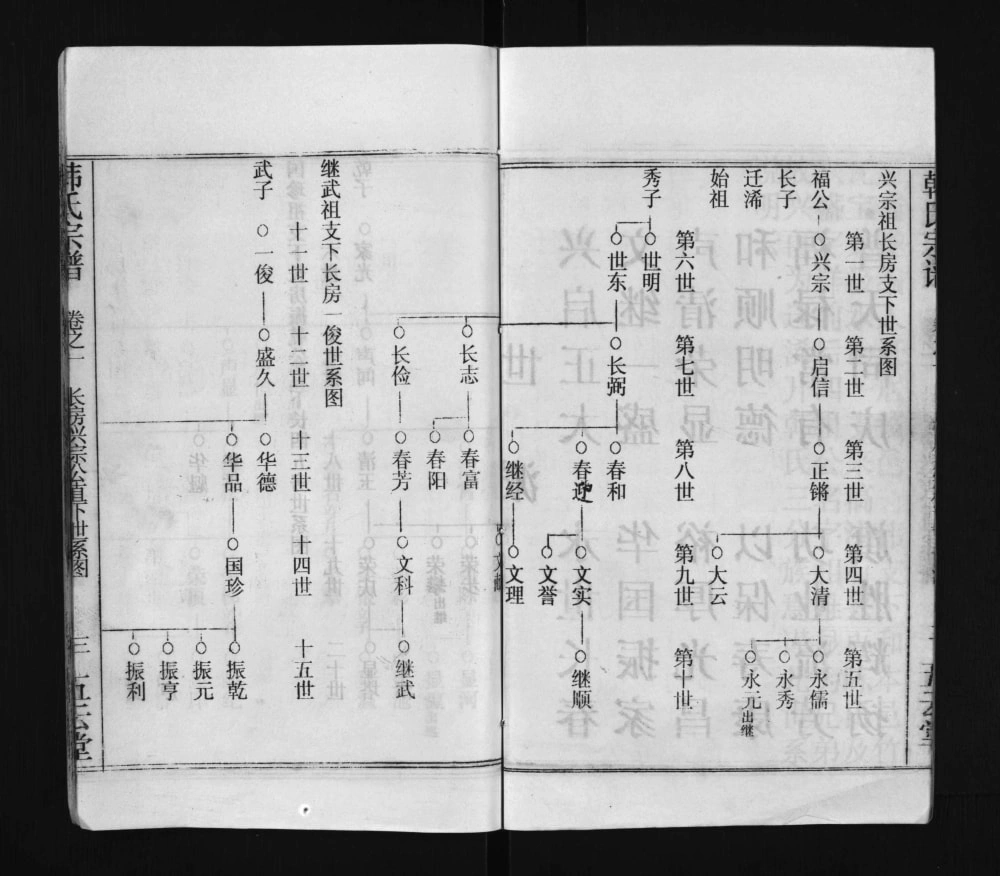 兴宗祖长房支下世系图
第一世 第二世 第三世 第四世 第五世
福公 兴宗 启信 正锵 大清 永儒
长子 永秀
迁浠 永元出继
始祖 大云
第六世 第七世 第八世 第九世 第十世
秀子 世明
世东 长弼 春和
春迎 文实 继顺
文誉
继经 文理
长志 春富
春阳
长俭 春芳 文科 继武
继武祖支下长房一俊世系图
十一世 十二世 十三世 十四世 十五世
武子 一俊 盛久 华德
华品 国珍 振乾
振元
振亨
振利
韩氏宗谱 卷之一 长房兴宗公位下世系图 三